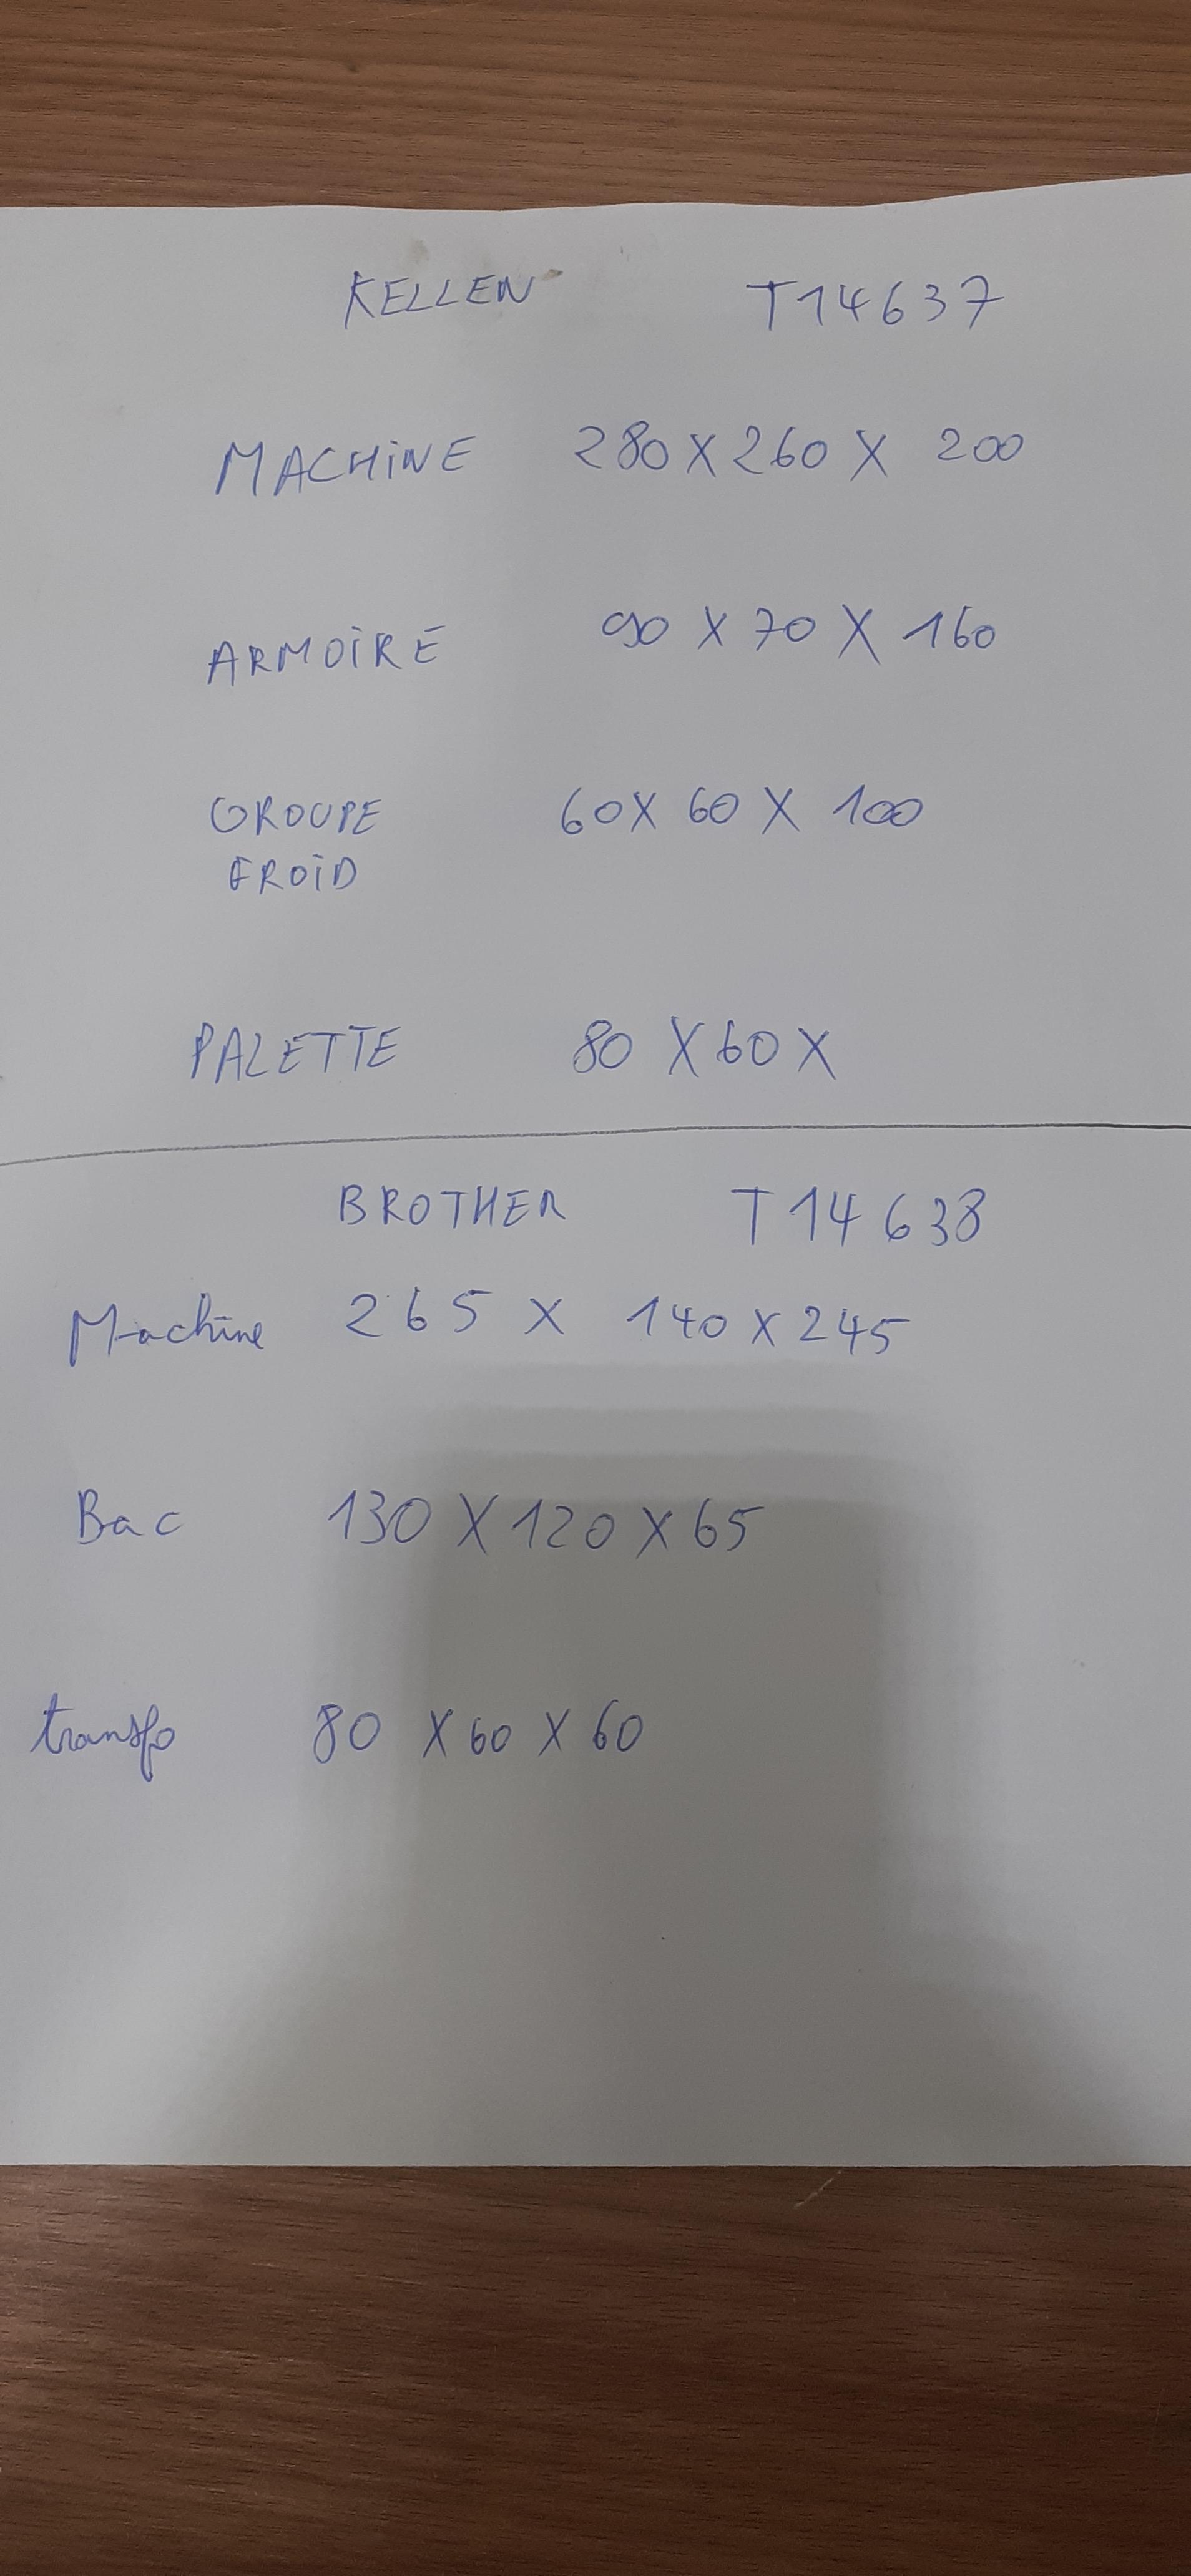 KELLEN T14637
MACHINE 280 X 260 X 200
ARMOIRE 90 X 70 X 160
GROUPE 60 X 60 X 100
FROID
PALETTE 80 X 60 X
BROTHER T14638
Machine 265 X 140 X 245
Bac 130 X 120 X 65
transfo 80 X 60 X 60